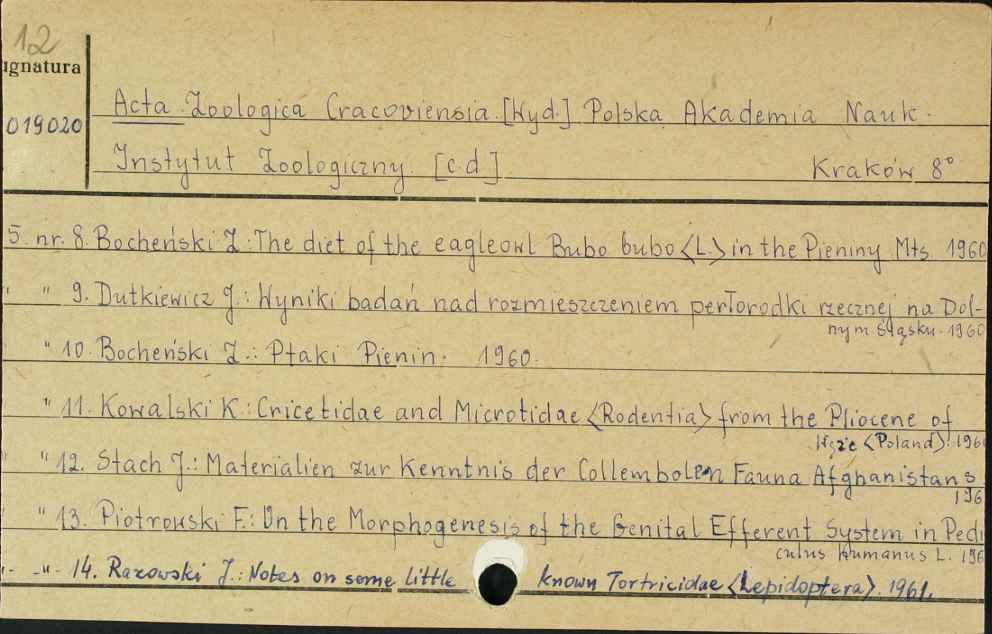 12
ignatura
019020
Acta Zoologica Cracoviensia. [Wyd.] Polska Akademia Nauk.
Instytut Zoologiczny. [c.d]. Kraków 8°
5. nr. 8. Bocheński Z.: The diet of the eagleowl Bubo bubo <L.> in the Pieniny Mts. 1960
" 9. Dutkiewicz J.: Wyniki badań nad rozmieszczeniem perłorodki rzecznej na Dol-
nym Śląsku. 1960
" 10. Bocheński Z.: Ptaki Pienin. 1960.
" 11. Kowalski K.: Cricetidae and Microtidae <Rodentia> from the Pliocene of
Węże <Poland>. 1960
" 12. Stach J.: Materialien zur Kenntnis der Collembolen Fauna Afghanistans.
196
" 13. Piotrowski F.: On the Morphogenesis of the Genital Efferent System in Pedi
culus humanus L. 196
-"- 14. Razowski J.: Notes on some little known Tortricidae <Lepidoptera>. 1961.